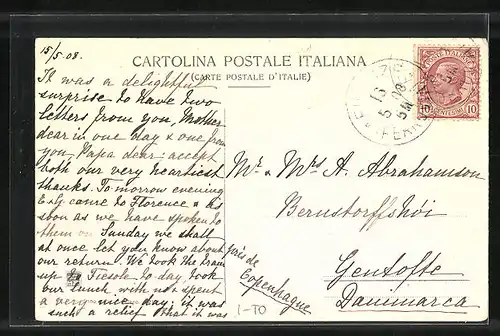 15/5.08.
CARTOLINA POSTALE ITALIANA
(CARTE POSTALE D'ITALIE)
It was a delightful
surprise to have two
letters from you, Mother
dear in one day & one from
you, Papa dear: accept
both our very heartiest
thanks. To morrow evening
E & G come to Florence & as
soon as we have spoken to
them on Sunday we shall
at once let you know about
our return. We took the tram
up to Fiesole to day took
our lunch with us & spent
a very nice day; it was
such a relief that it was
Mr. & Mrs A. Abrahamson
Bernstorffshöi
près de
Copenhague
Gentofte
Danimarca
1-TO
POSTE ITALIANE
10 CENTESIMI 10
FERROVIA
15
5
08